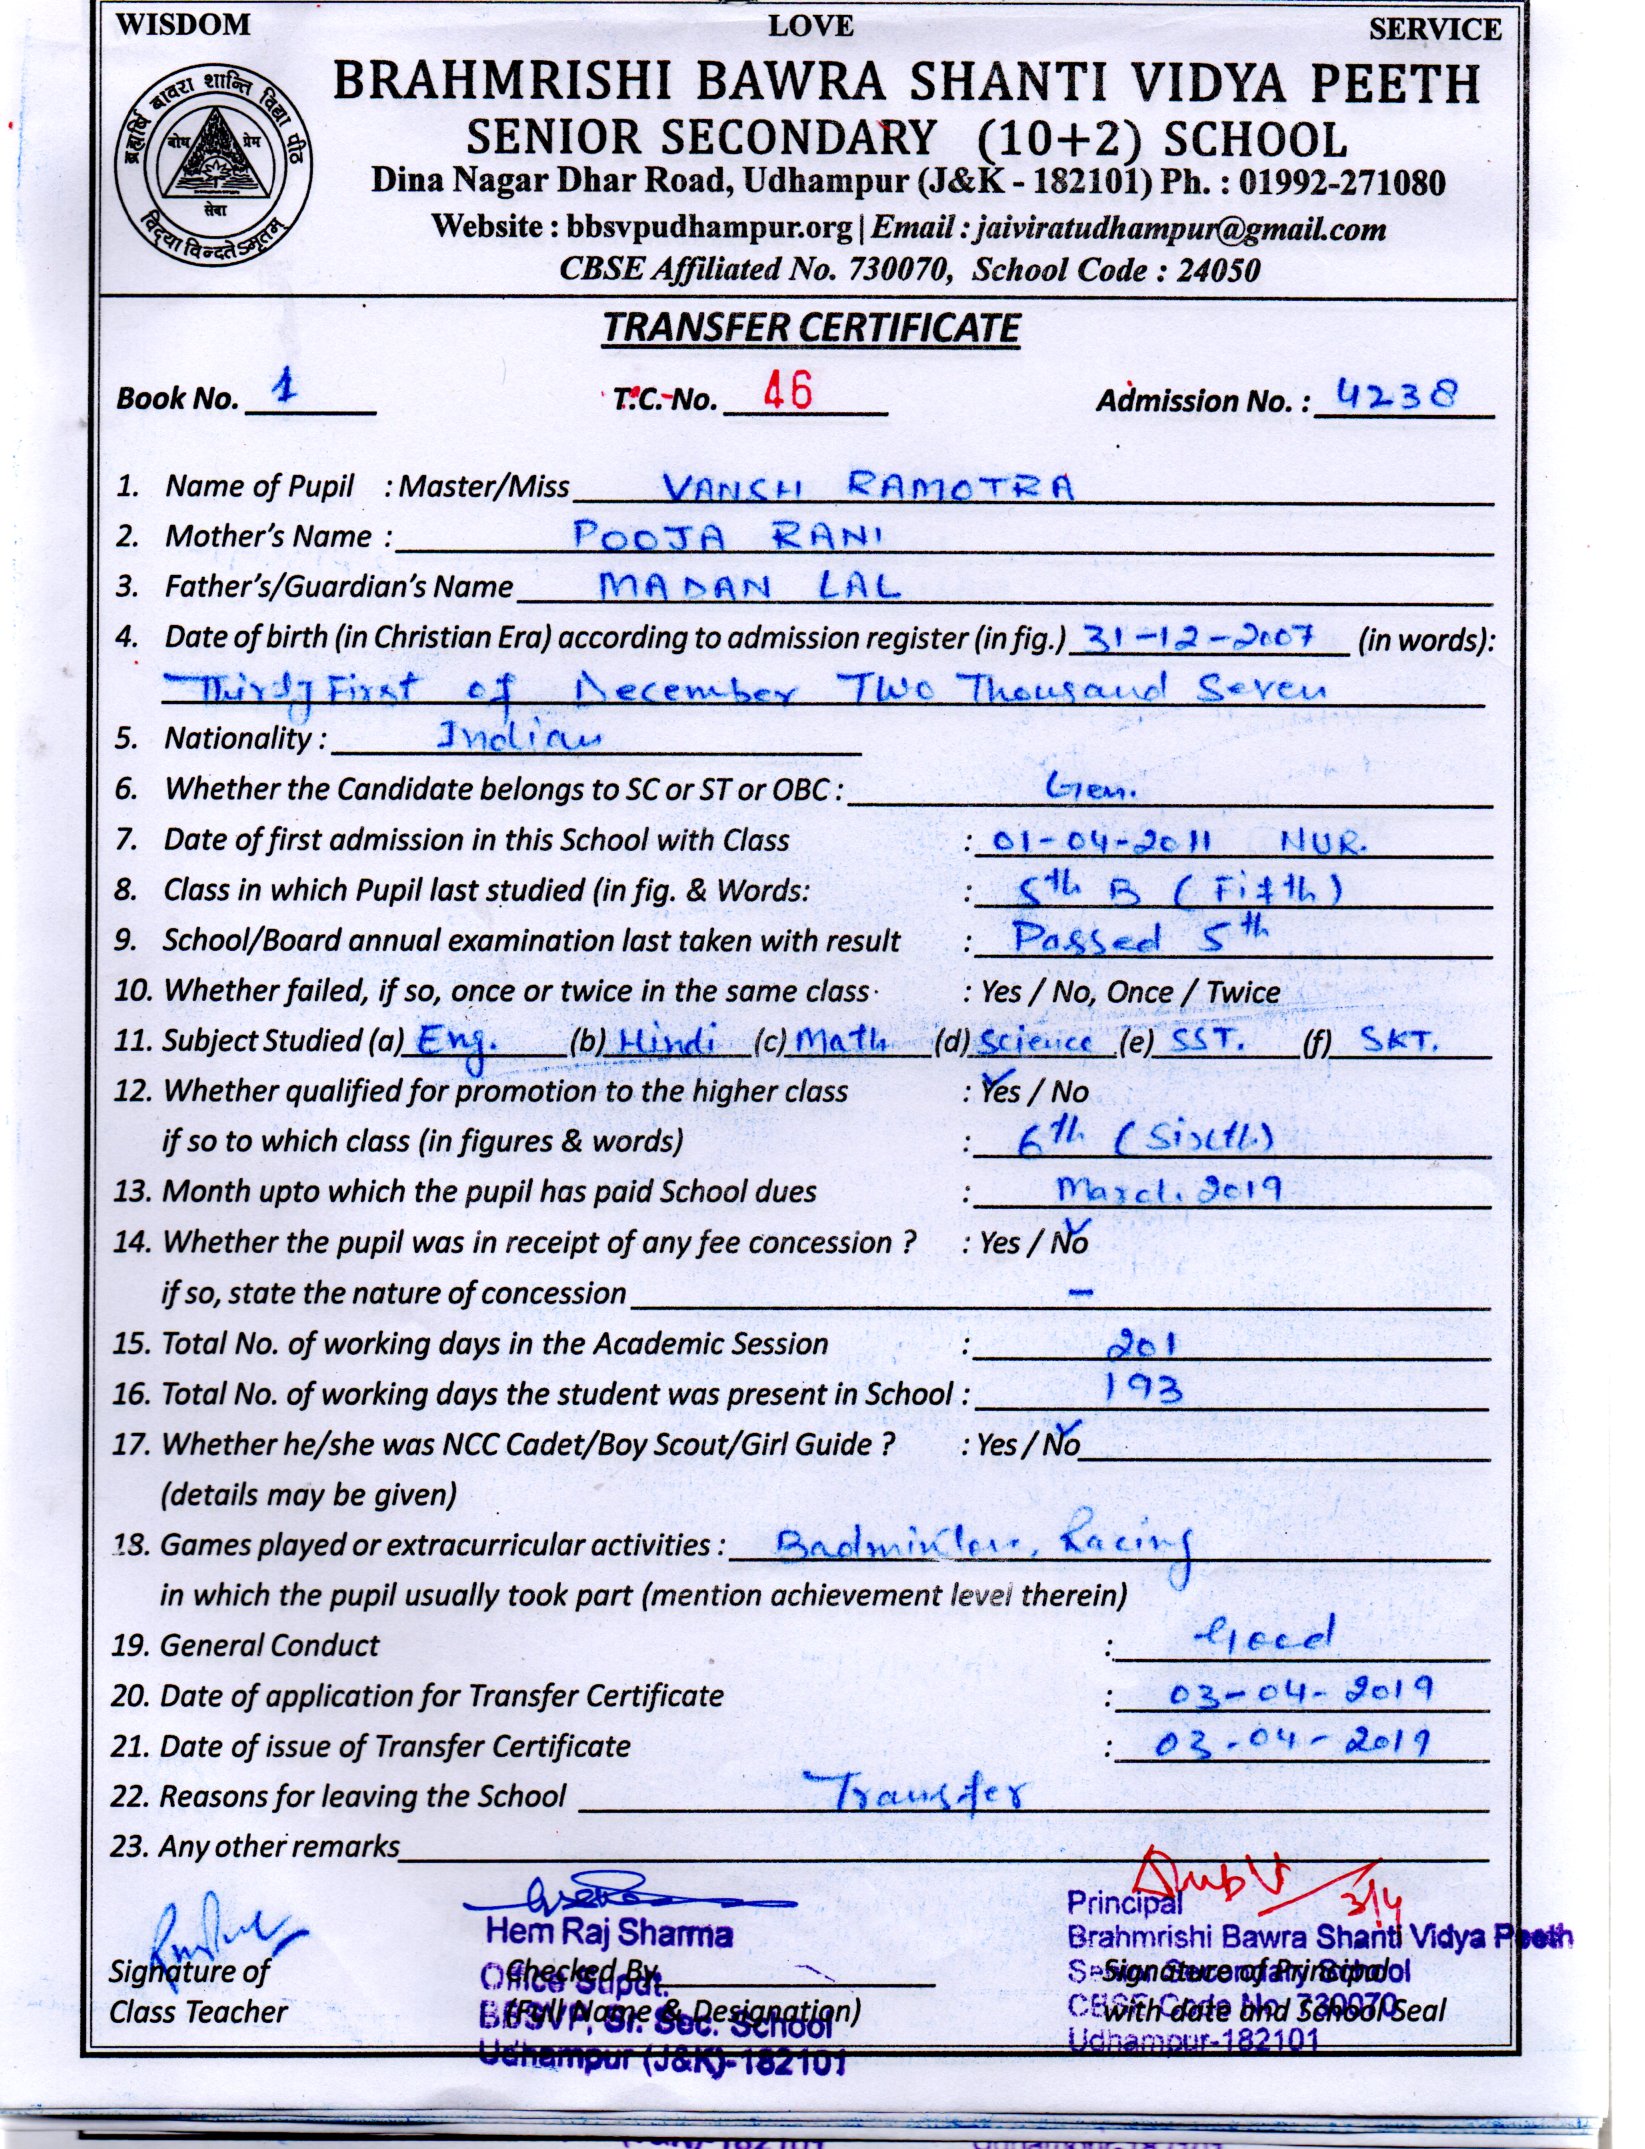 WISDOM LOVE SERVICE
ब्रह्मर्षि बावरा शान्ति विद्या पीठ
बोध प्रेम
सेवा
विद्यया विन्दतेऽमृतम्
BRAHMRISHI BAWRA SHANTI VIDYA PEETH
SENIOR SECONDARY (10+2) SCHOOL
Dina Nagar Dhar Road, Udhampur (J&K - 182101) Ph. : 01992-271080
Website : bbsvpudhampur.org | Email : jaiviratudhampur@gmail.com
CBSE Affiliated No. 730070, School Code : 24050
TRANSFER CERTIFICATE
Book No. 1 T.C. No. 46 Admission No. : 4238
1. Name of Pupil : Master/Miss VANSH RAMOTRA
2. Mother's Name : POOJA RANI
3. Father's/Guardian's Name MADAN LAL
4. Date of birth (in Christian Era) according to admission register (in fig.) 31-12-2007 (in words):
Thirdy First of December Two Thousand Seven
5. Nationality : Indian
6. Whether the Candidate belongs to SC or ST or OBC : Gen.
7. Date of first admission in this School with Class : 01-04-2011 NUR.
8. Class in which Pupil last studied (in fig. & Words: : 5th B (Fifth)
9. School/Board annual examination last taken with result : Passed 5th
10. Whether failed, if so, once or twice in the same class : Yes / No, Once / Twice
11. Subject Studied (a) Eng. (b) Hindi (c) Math (d) Science (e) SST. (f) SKT.
12. Whether qualified for promotion to the higher class : Yes / No
if so to which class (in figures & words) : 6th (Sixth)
13. Month upto which the pupil has paid School dues : March 2019
14. Whether the pupil was in receipt of any fee concession ? : Yes / No
if so, state the nature of concession –
15. Total No. of working days in the Academic Session : 201
16. Total No. of working days the student was present in School : 193
17. Whether he/she was NCC Cadet/Boy Scout/Girl Guide ? : Yes / No
(details may be given)
18. Games played or extracurricular activities : Badminton, Racing
in which the pupil usually took part (mention achievement level therein)
19. General Conduct : Good
20. Date of application for Transfer Certificate : 03-04-2019
21. Date of issue of Transfer Certificate : 03-04-2019
22. Reasons for leaving the School Transfer
23. Any other remarks
3/4
Hem Raj Sharma Principal
Brahmrishi Bawra Shanti Vidya Peeth
Signature of Checked By Signature of Principal
Office Supdt. Senior Secondary School
Class Teacher (Full Name & Designation) with date and School Seal
BBSVP, Sr. Sec. School CBSE Code No. 730070
Udhampur (J&K)-182101 Udhampur-182101